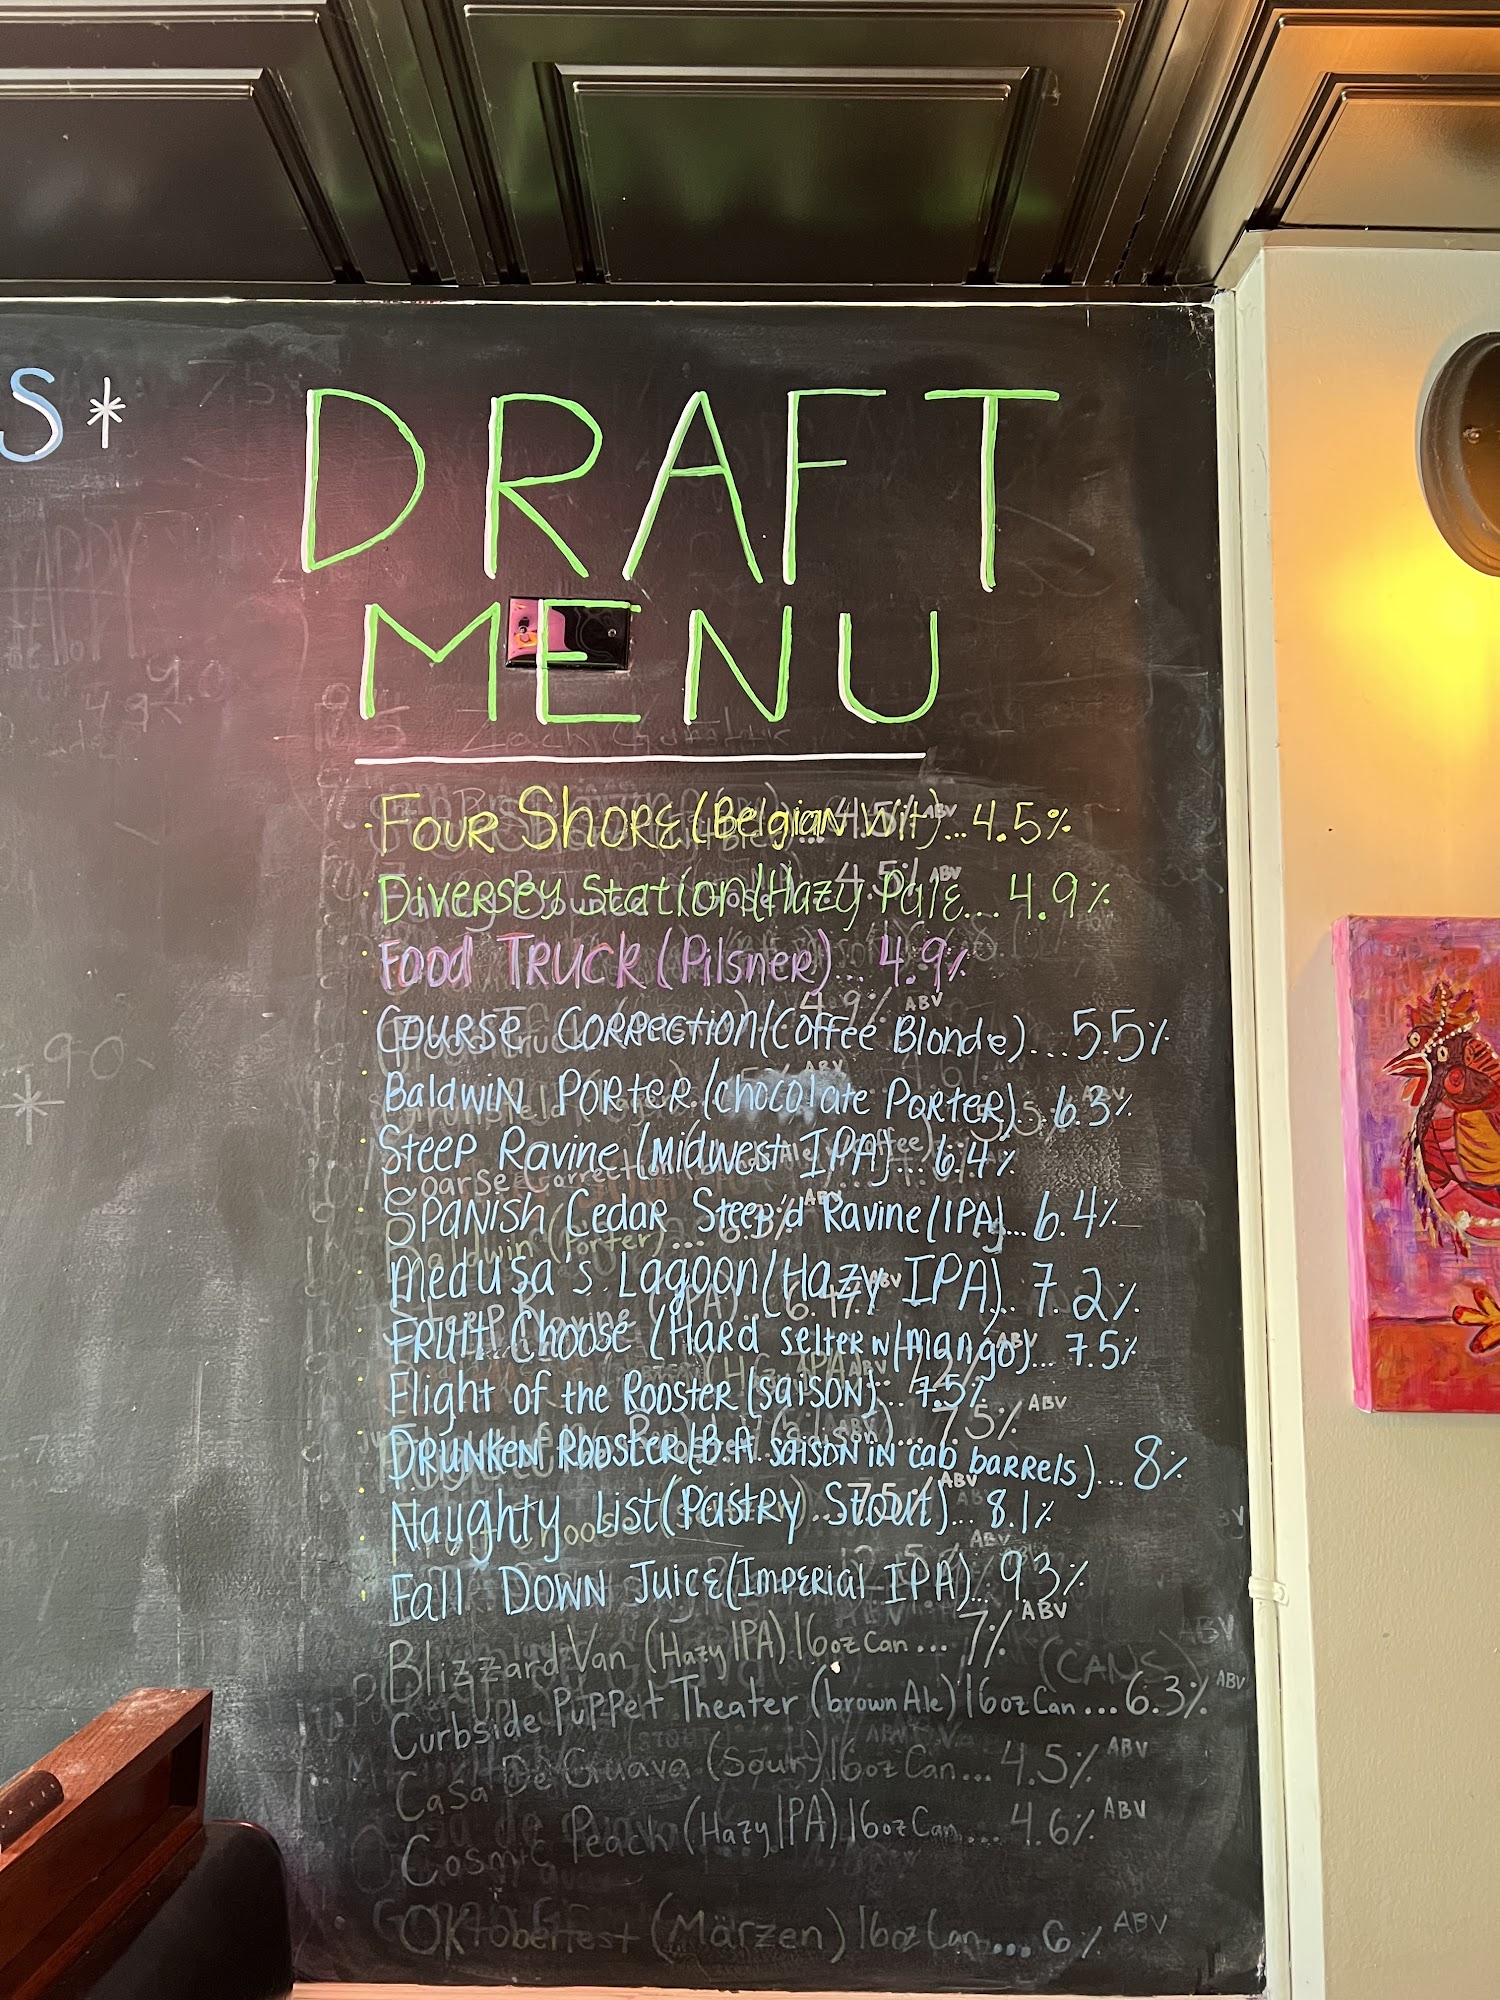 S*
DRAFT
MENU
Four Shore (Belgian Wit)... 4.5%
Diversey Station (Hazy Pale... 4.9%
Food Truck (Pilsner)... 4.9%
Course Correction (Coffee Blonde)... 5.5%
Baldwin Porter (chocolate Porter). 6.3%
Steep Ravine (Midwest IPA)... 6.4%
Spanish Cedar Steep'd Ravine (IPA)... 6.4%
Medusa's Lagoon (Hazy IPA)... 7.2%
Fruit Choose (Hard selter w/mango)... 7.5%
Flight of the Rooster (saison)... 7.5%
Drunken Rooster (B.A. saison in cab barrels)... 8%
Naughty List (Pastry Stout)... 8.1%
Fall Down Juice (Imperial IPA)... 9.3%
Blizzard Van (Hazy IPA) 16oz Can... 7% ABV
Curbside Puppet Theater (brown Ale) 16oz Can... 6.3% ABV
Casa De Guava (Sour) 16oz Can... 4.5% ABV
Cosmic Peach (Hazy IPA) 16oz Can... 4.6% ABV
Oktoberfest (Märzen) 16oz Can... 6% ABV